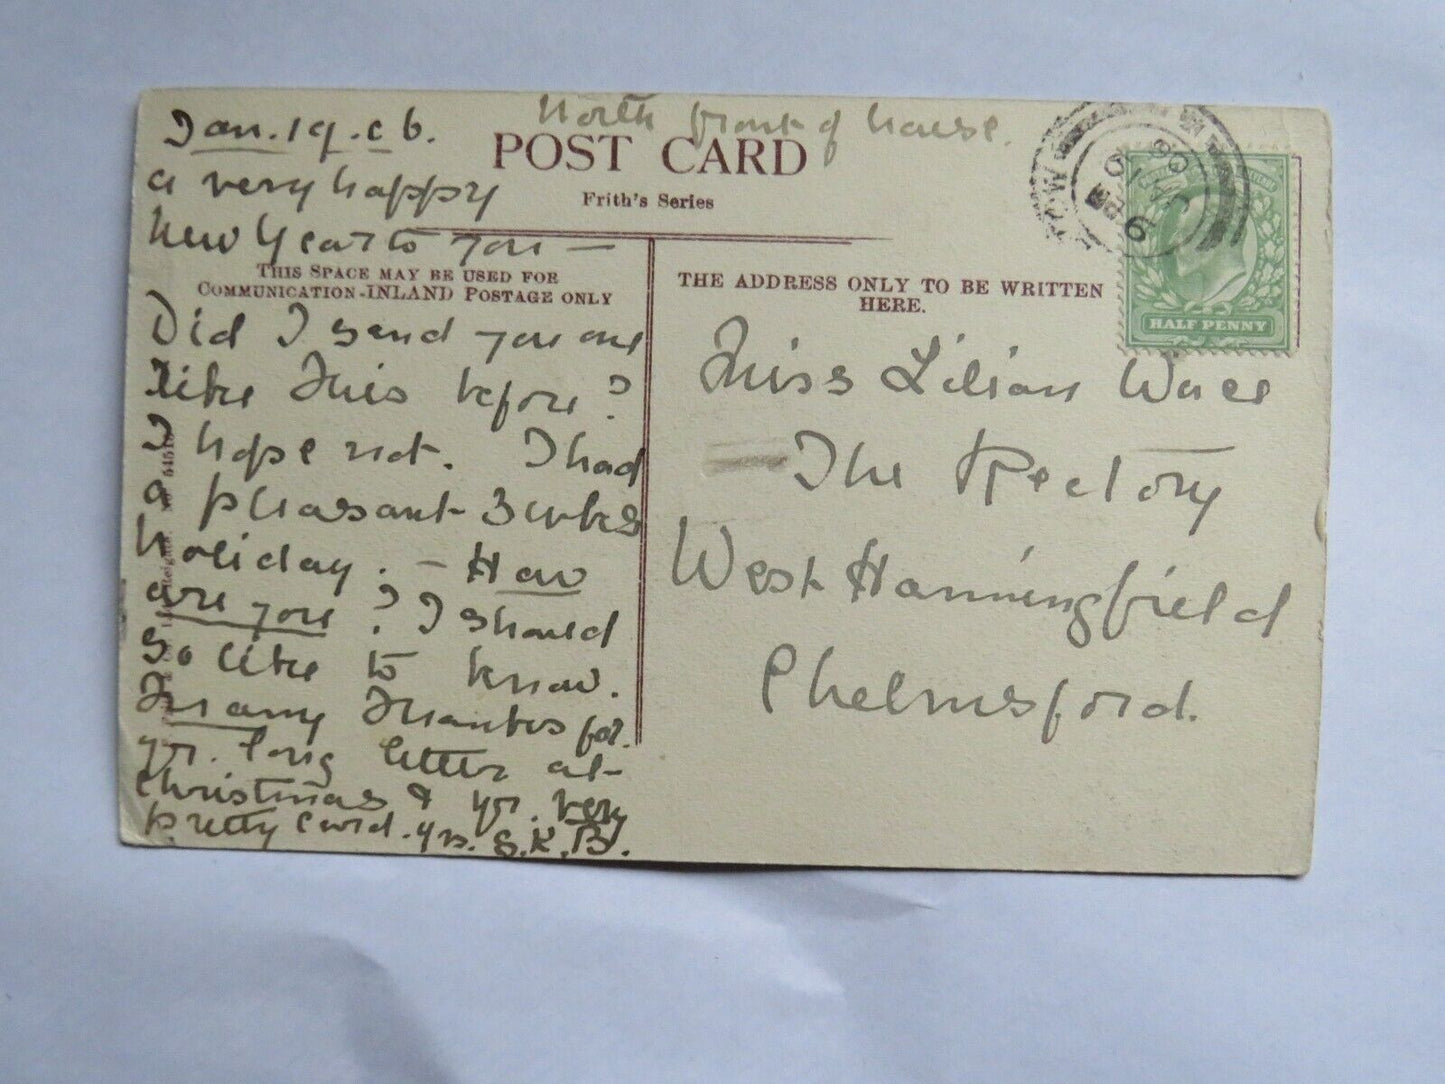 North front of house.
Jan. 19. 06.
POST CARD
Frith's Series
a very happy
New Year to you —
THIS SPACE MAY BE USED FOR
COMMUNICATION-INLAND POSTAGE ONLY
Did I send you one
like this before?
I hope not. I had
a pleasant 3 wks
holiday. — How
are you? I should
so like to know.
Many thanks for
yr. long letter at
Christmas & yr. very
pretty card. yrs. S.K.B.
THE ADDRESS ONLY TO BE WRITTEN
HERE.
Miss Lilian Wace
The Rectory
West Hanningfield
Chelmsford.
HALF PENNY
Reigate.